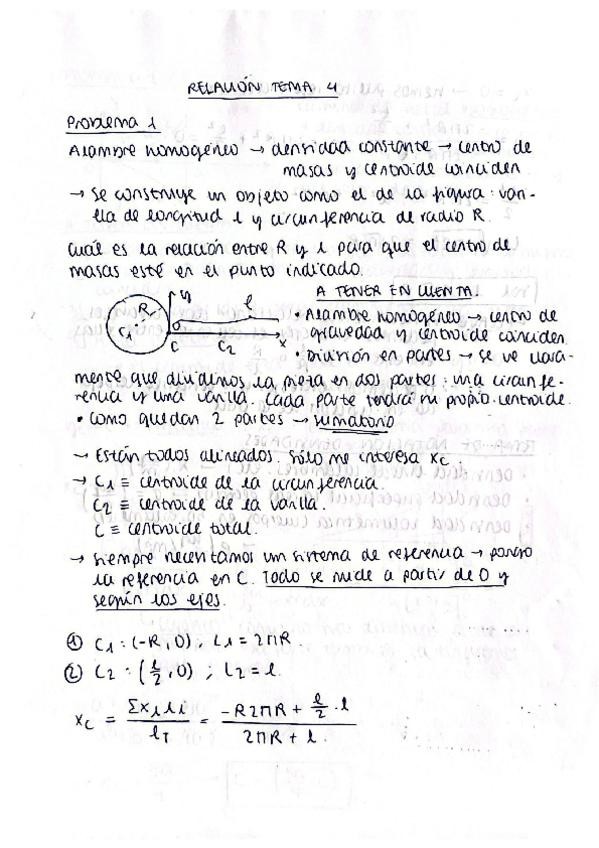 RELACIÓN TEMA 4
Problema 1
Alambre homogéneo → densidad constante → centro de
masas y centroide coinciden.
→ Se construye un objeto como el de la figura: vari-
lla de longitud l y circunferencia de radio R.
Cuál es la relación entre R y l para que el centro de
masas esté en el punto indicado.
A TENER EN CUENTA.
y R l
C1 O x
C C2
• Alambre homogéneo → centro de
gravedad y centroide coinciden.
• División en partes → se ve clara-
mente que dividimos la pieza en dos partes: una circunfe-
rencia y una varilla. Cada parte tendrá su propio centroide.
• Como quedan 2 partes → sumatorio
→ Están todos alineados. Sólo me interesa xc.
→ C1 ≡ centroide de la circunferencia.
C2 ≡ centroide de la varilla.
C ≡ centroide total.
→ Siempre necesitamos un sistema de referencia → pongo
la referencia en C. Todo se mide a partir de O y
según los ejes.
① C1 : (-R, 0) ; L1 = 2πR
② C2 : (l/2, 0) ; L2 = l.
xc = Σxi li / lT = (-R2πR + l/2 · l) / (2πR + l).